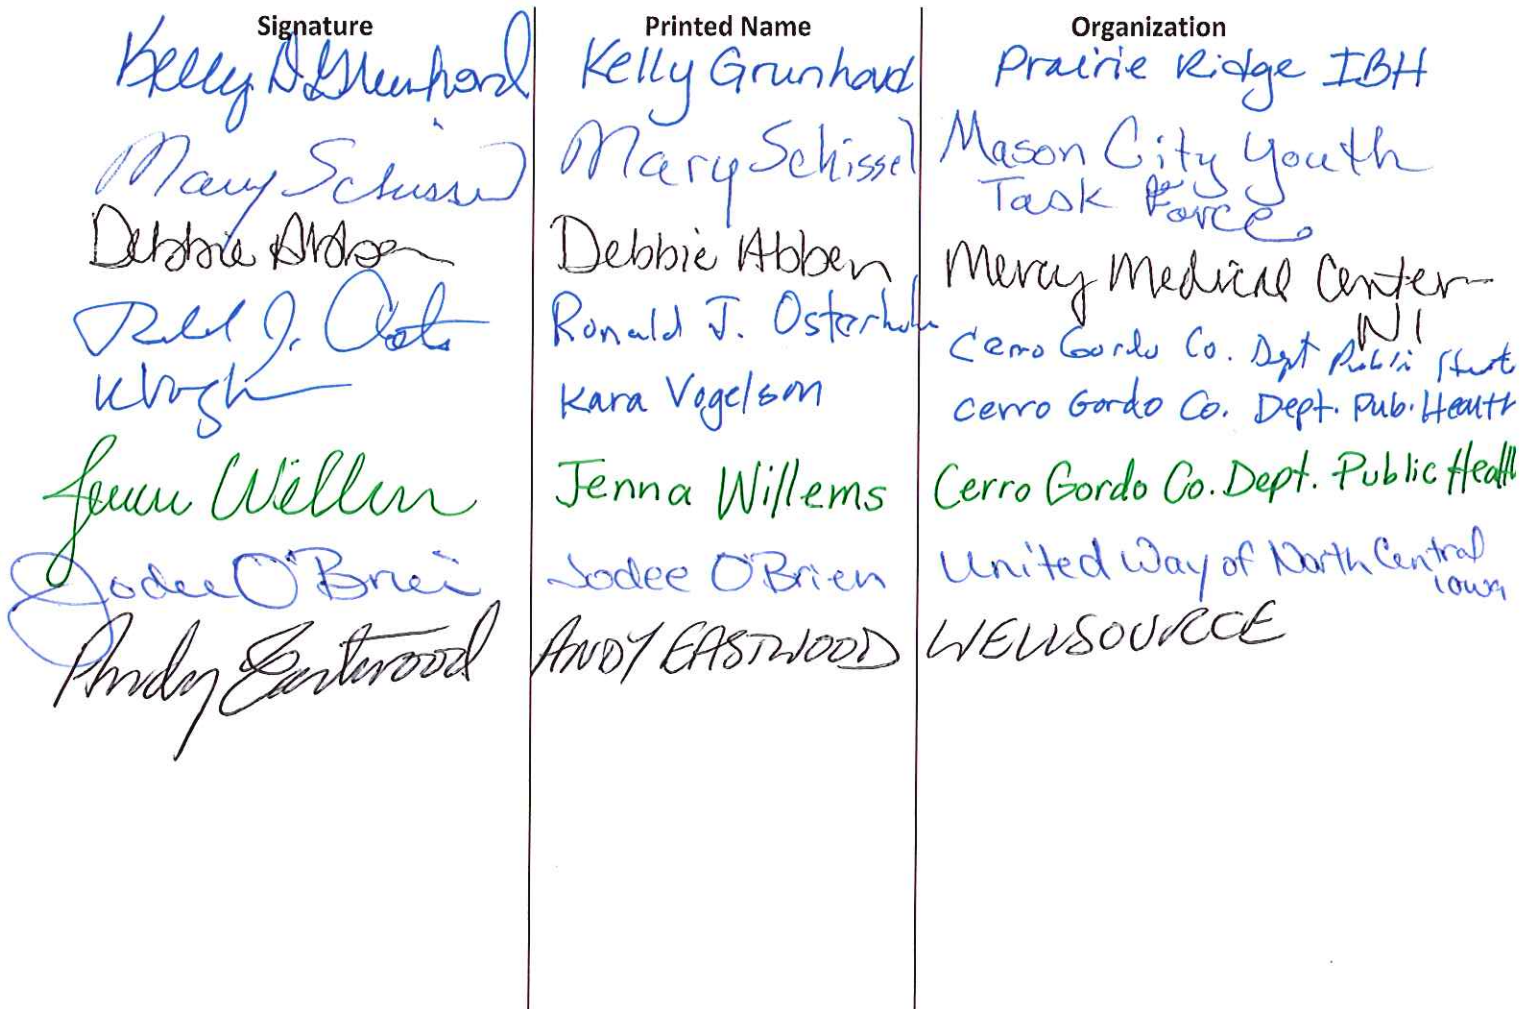 Signature Printed Name Organization
Kelly D Grunhovd Kelly Grunhovd Prairie Ridge IBH
Mary Schissel Mary Schissel Mason City Youth
Task Force
Debbie Abben Debbie Abben Mercy Medical Center
NI
Ronald J. Osterholm Cerro Gordo Co. Dept Public Healt
Kara Vogelson Cerro Gordo Co. Dept. Pub. Health
Jenna Willems Jenna Willems Cerro Gordo Co. Dept. Public Health
Jodee O'Brien Jodee O'Brien United Way of North Central
Iowa
Andy Eastwood ANDY EASTWOOD WELLSOURCE